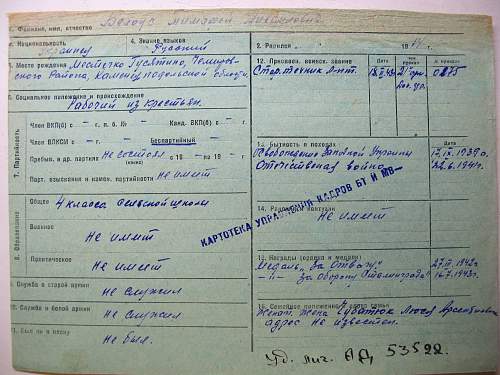 1. Фамилия, имя, отчество Белоус Тимофей
3. Национальность Украинец
4. Знание языков Русский
2. Родился
5. Место рождения Местечко Гусятино, Чемировского Района, Каменецподольской области
6. Социальное положение и происхождение
Рабочий из крестьян.
7. Партийность
Член ВКП(б) с – г., п. б. № – Канд. ВКП(б) с – г.
Член ВЛКСМ с – г. Беспартийный
Пребыв. в др. партиях не состоял с 19 – по 19 – г.
Парт. взыскания и каким. парторган. не имеет
8. Образование
Общее 4 класса сельской школы
Военное не имеет
Политическое не имеет
9. Служба в старой армии не служил
10. Служба в белой армии не служил
11. Был ли в плену не был.
12. Присвоен. воинск. звание
Дата
№ приказа
Стар. техник л-нт.
0275
13. Бытность в походах
Освобождение Западной Украины 17.IX.1939г.
Отечественная война 22.6.1941г.
КАРТОТЕКА УПРАВЛЕНИЯ КАДРОВ БТ И МВ
14. Ранения и контузии
Не имеет
15. Награды (ордена и медали)
Медаль „За Отвагу" 1942г.
–"– „За оборону Сталинграда" 16.7.1943г.
16. Семейное положение и адрес семьи
Женат. Жена Чубатюк Люся
адрес не известен.
Уд. лич. АД 53522.